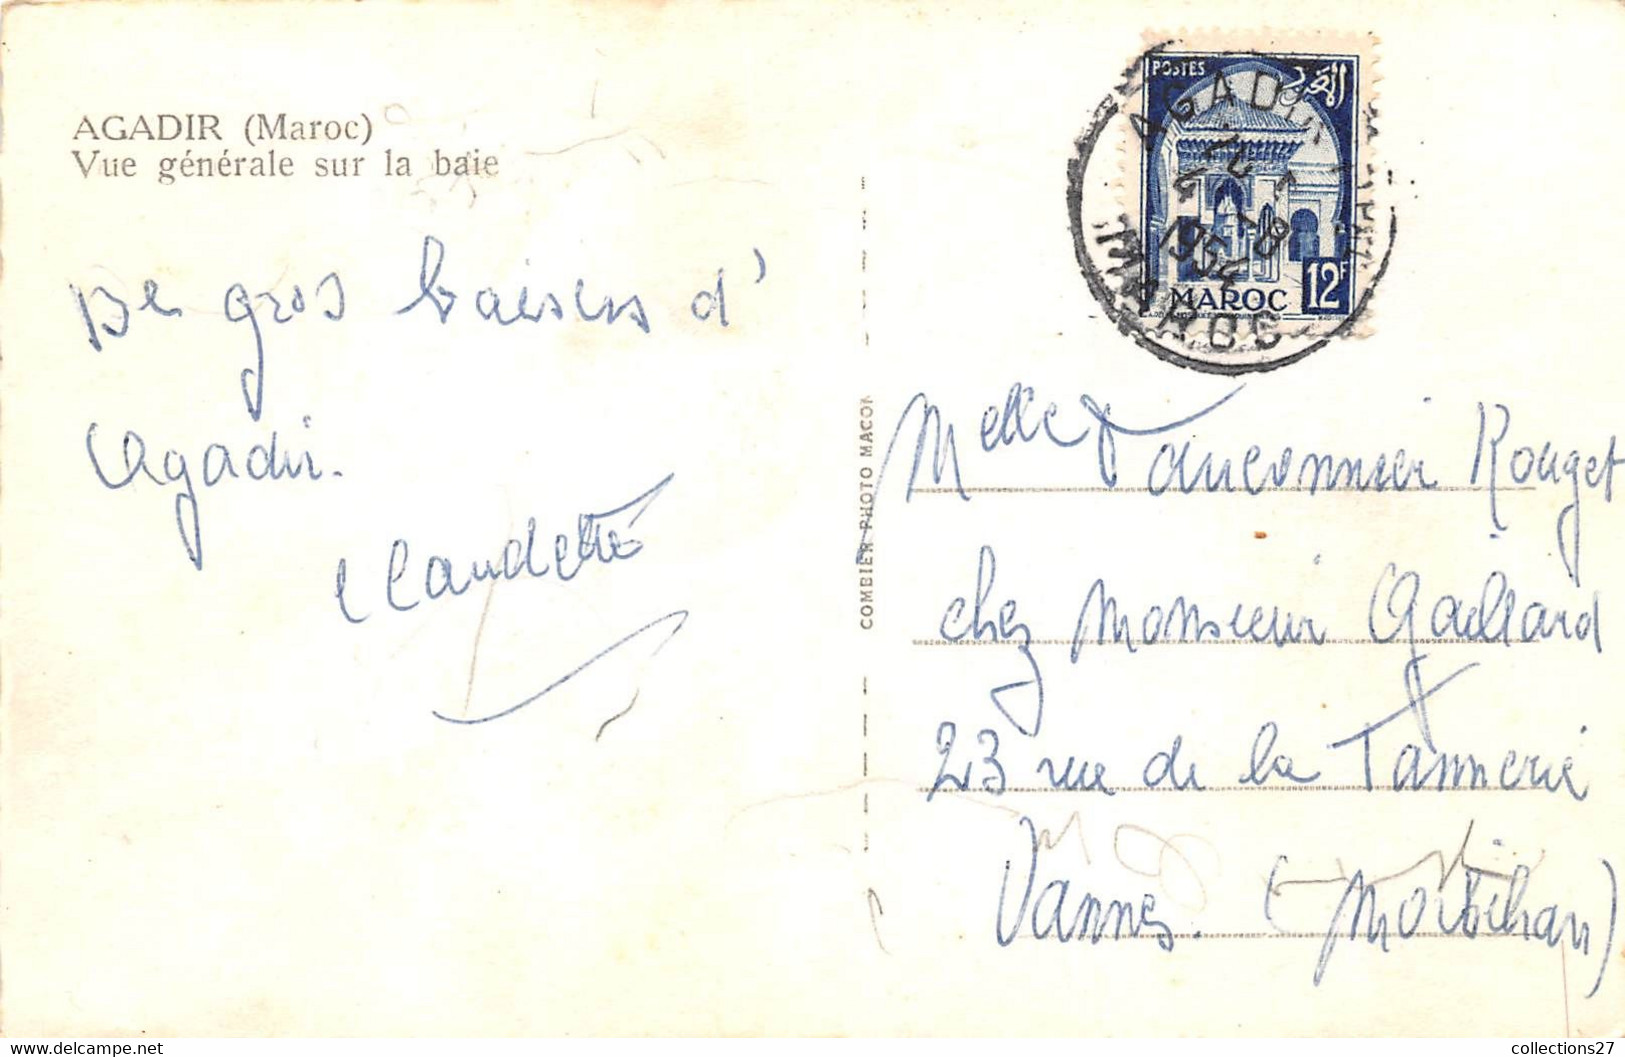 AGADIR (Maroc)
Vue générale sur la baie
De gros baisers d'
Agadir.
Claudette
COMBIER PHOTO MACON
POSTES المغرب
MAROC 12F
AGADIR
4 -8
1954
MAROC
Melle Fauconnier Rouget
chez Monsieur Gaillard
23 rue de la Tannerie
Vannes. (Morbihan)
delcampe.net
collections27